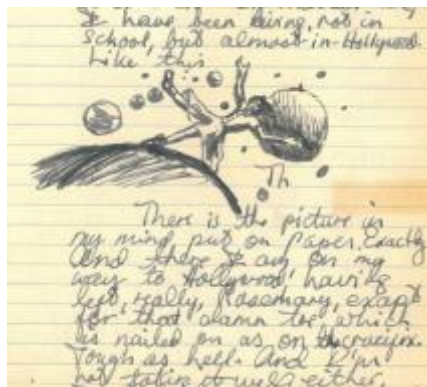 I have been living, not in
School, but almost in Hollywood.
Like this
Th
There is the picture in
my mind put on paper, exactly
And there I am on my
way to Hollywood, having
left, really, Rosemary, except
for that damn toe which
is nailed on as on the crucifix.
Tough as hell. And I'm
not taking it well either,